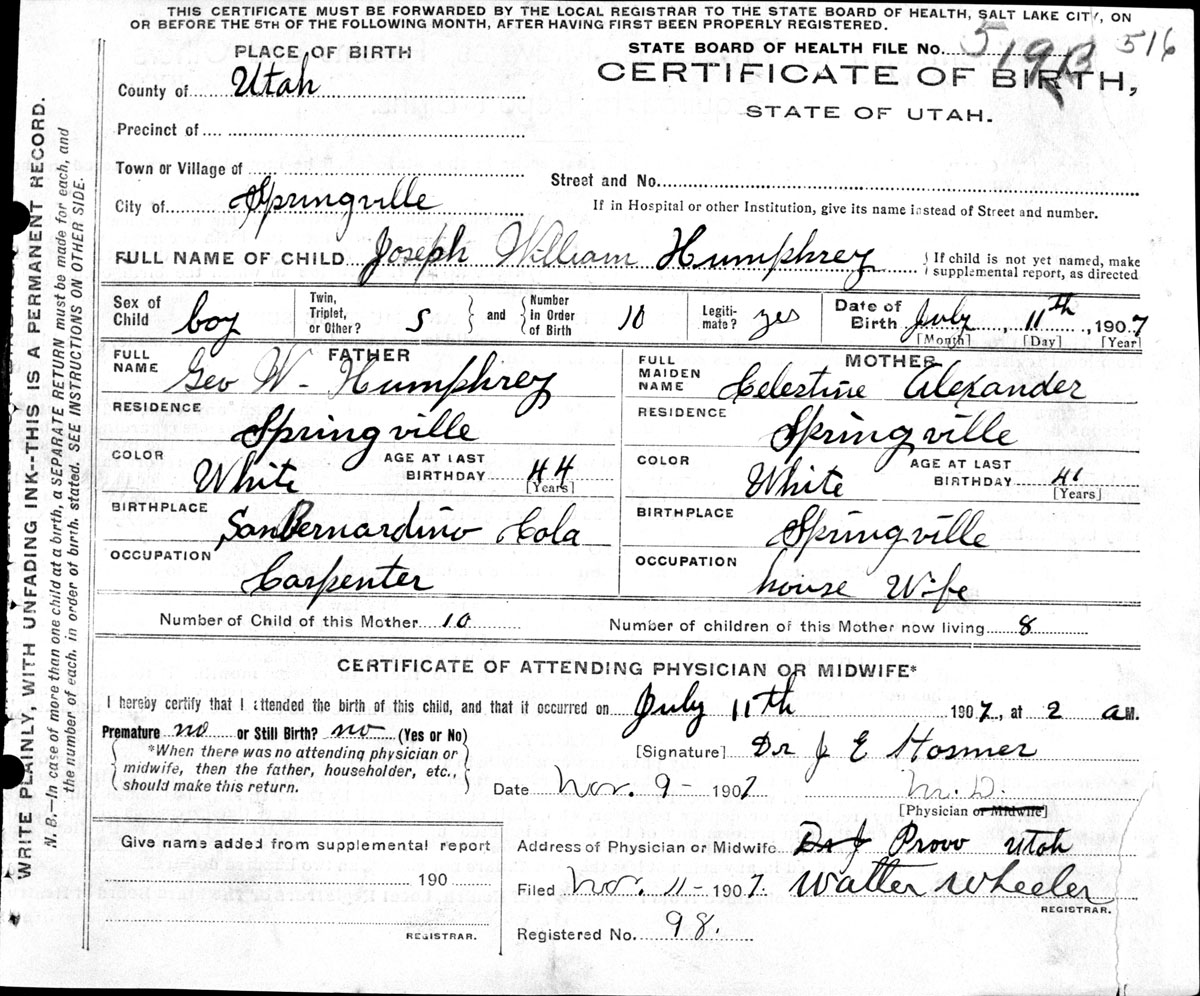 THIS CERTIFICATE MUST BE FORWARDED BY THE LOCAL REGISTRAR TO THE STATE BOARD OF HEALTH, SALT LAKE CITY, ON
OR BEFORE THE 5TH OF THE FOLLOWING MONTH, AFTER HAVING FIRST BEEN PROPERLY REGISTERED.
PLACE OF BIRTH
STATE BOARD OF HEALTH FILE No. 516
County of Utah
CERTIFICATE OF BIRTH,
STATE OF UTAH.
Precinct of
Town or Village of
Street and No.
City of Springville
If in Hospital or other Institution, give its name instead of Street and number.
FULL NAME OF CHILD Joseph William Humphrey
If child is not yet named, make supplemental report, as directed
Sex of Child boy Twin, Triplet, or Other? S and Number in Order of Birth 10 Legiti-mate? yes Date of Birth July 11th, 1907
[Month] [Day] [Year]
FATHER
MOTHER
FULL NAME Geo W- Humphrey
FULL MAIDEN NAME Celestine Alexander
RESIDENCE Springville
RESIDENCE Springville
COLOR White AGE AT LAST BIRTHDAY 44 [Years]
COLOR White AGE AT LAST BIRTHDAY 41 [Years]
BIRTHPLACE San Bernardino Cola
BIRTHPLACE Springville
OCCUPATION Carpenter
OCCUPATION house Wife
Number of Child of this Mother 10 Number of children of this Mother now living 8
CERTIFICATE OF ATTENDING PHYSICIAN OR MIDWIFE*
I hereby certify that I attended the birth of this child, and that it occurred on July 11th 1907, at 2 a M.
Premature no or Still Birth? no (Yes or No)
*When there was no attending physician or
midwife, then the father, householder, etc.,
should make this return.
[Signature] Dr J E Hosmer
Date Nov. 9- 1907 M.D.
[Physician or Midwife]
Give name added from supplemental report
190
REGISTRAR.
Address of Physician or Midwife Dr J Provo Utah
Filed Nov. 11- 1907. Walter Wheeler
REGISTRAR.
Registered No. 98.
WRITE PLAINLY, WITH UNFADING INK--THIS IS A PERMANENT RECORD.
N. B.—In case of more than one child at a birth, a SEPARATE RETURN must be made for each, and
the number of each, in order of birth, stated. SEE INSTRUCTIONS ON OTHER SIDE.